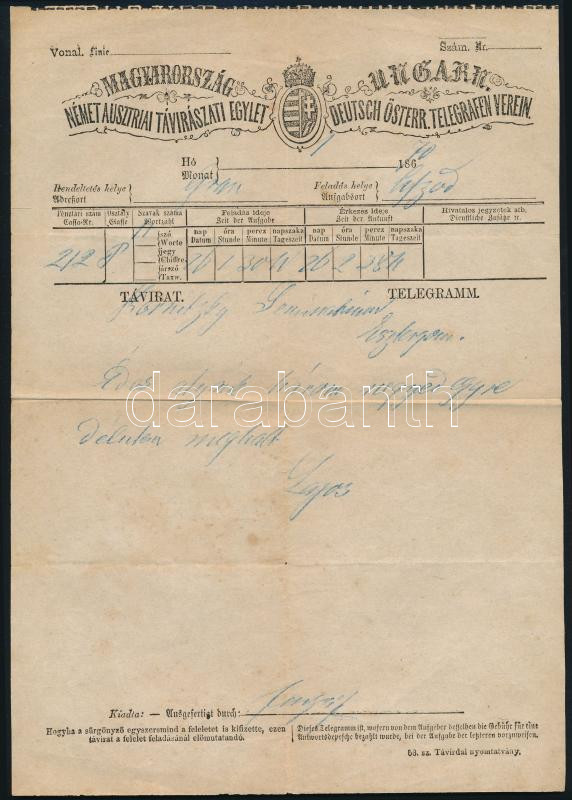 Vonal. Linie
Szám. Nr.
MAGYARORSZÁG UNGARN.
NÉMET AUSZTRIAI TÁVIRÁSZATI EGYLET DEUTSCH ÖSTERR. TELEGRAFEN VEREIN.
Hó
Monat 186
Rendeltetés helye
Adressort Gran Feladás helye
Aufgabsort
Pénztári szám
Cassa-Nr. Osztály
Classe Szavak száma
Wortzahl Feladás ideje
Zeit der Aufgabe Érkezés ideje
Zeit der Ankunft Hivatalos jegyzetek stb.
Dienstliche Zusätze rc.
szó
Worte
jegy
Chiffre
járszó
Taxw. nap
Datum óra
Stunde perez
Minute napszaka
Tageszeit nap
Datum óra
Stunde perez
Minute napszaka
Tageszeit
212 8 26 1 30 26 2
TÁVIRAT. TELEGRAMM.
Esztergom.
Édes három negyed egyre
delután meghalt
Lajos
darabanth
Kiadta: — Ausgefertigt durch:
Hogyha a sürgönyző egyszersmind a feleletet is kifizette, ezen
távirat a felelet feladásánál előmutatandó.
Dieses Telegramm ist, wofern von dem Aufgeber desselben die Gebühr für eine
Antwortsdepesche bezahlt wurde, bei der Aufgabe der letzteren vorzuweisen.
53. sz. Távirdai nyomtatvány.